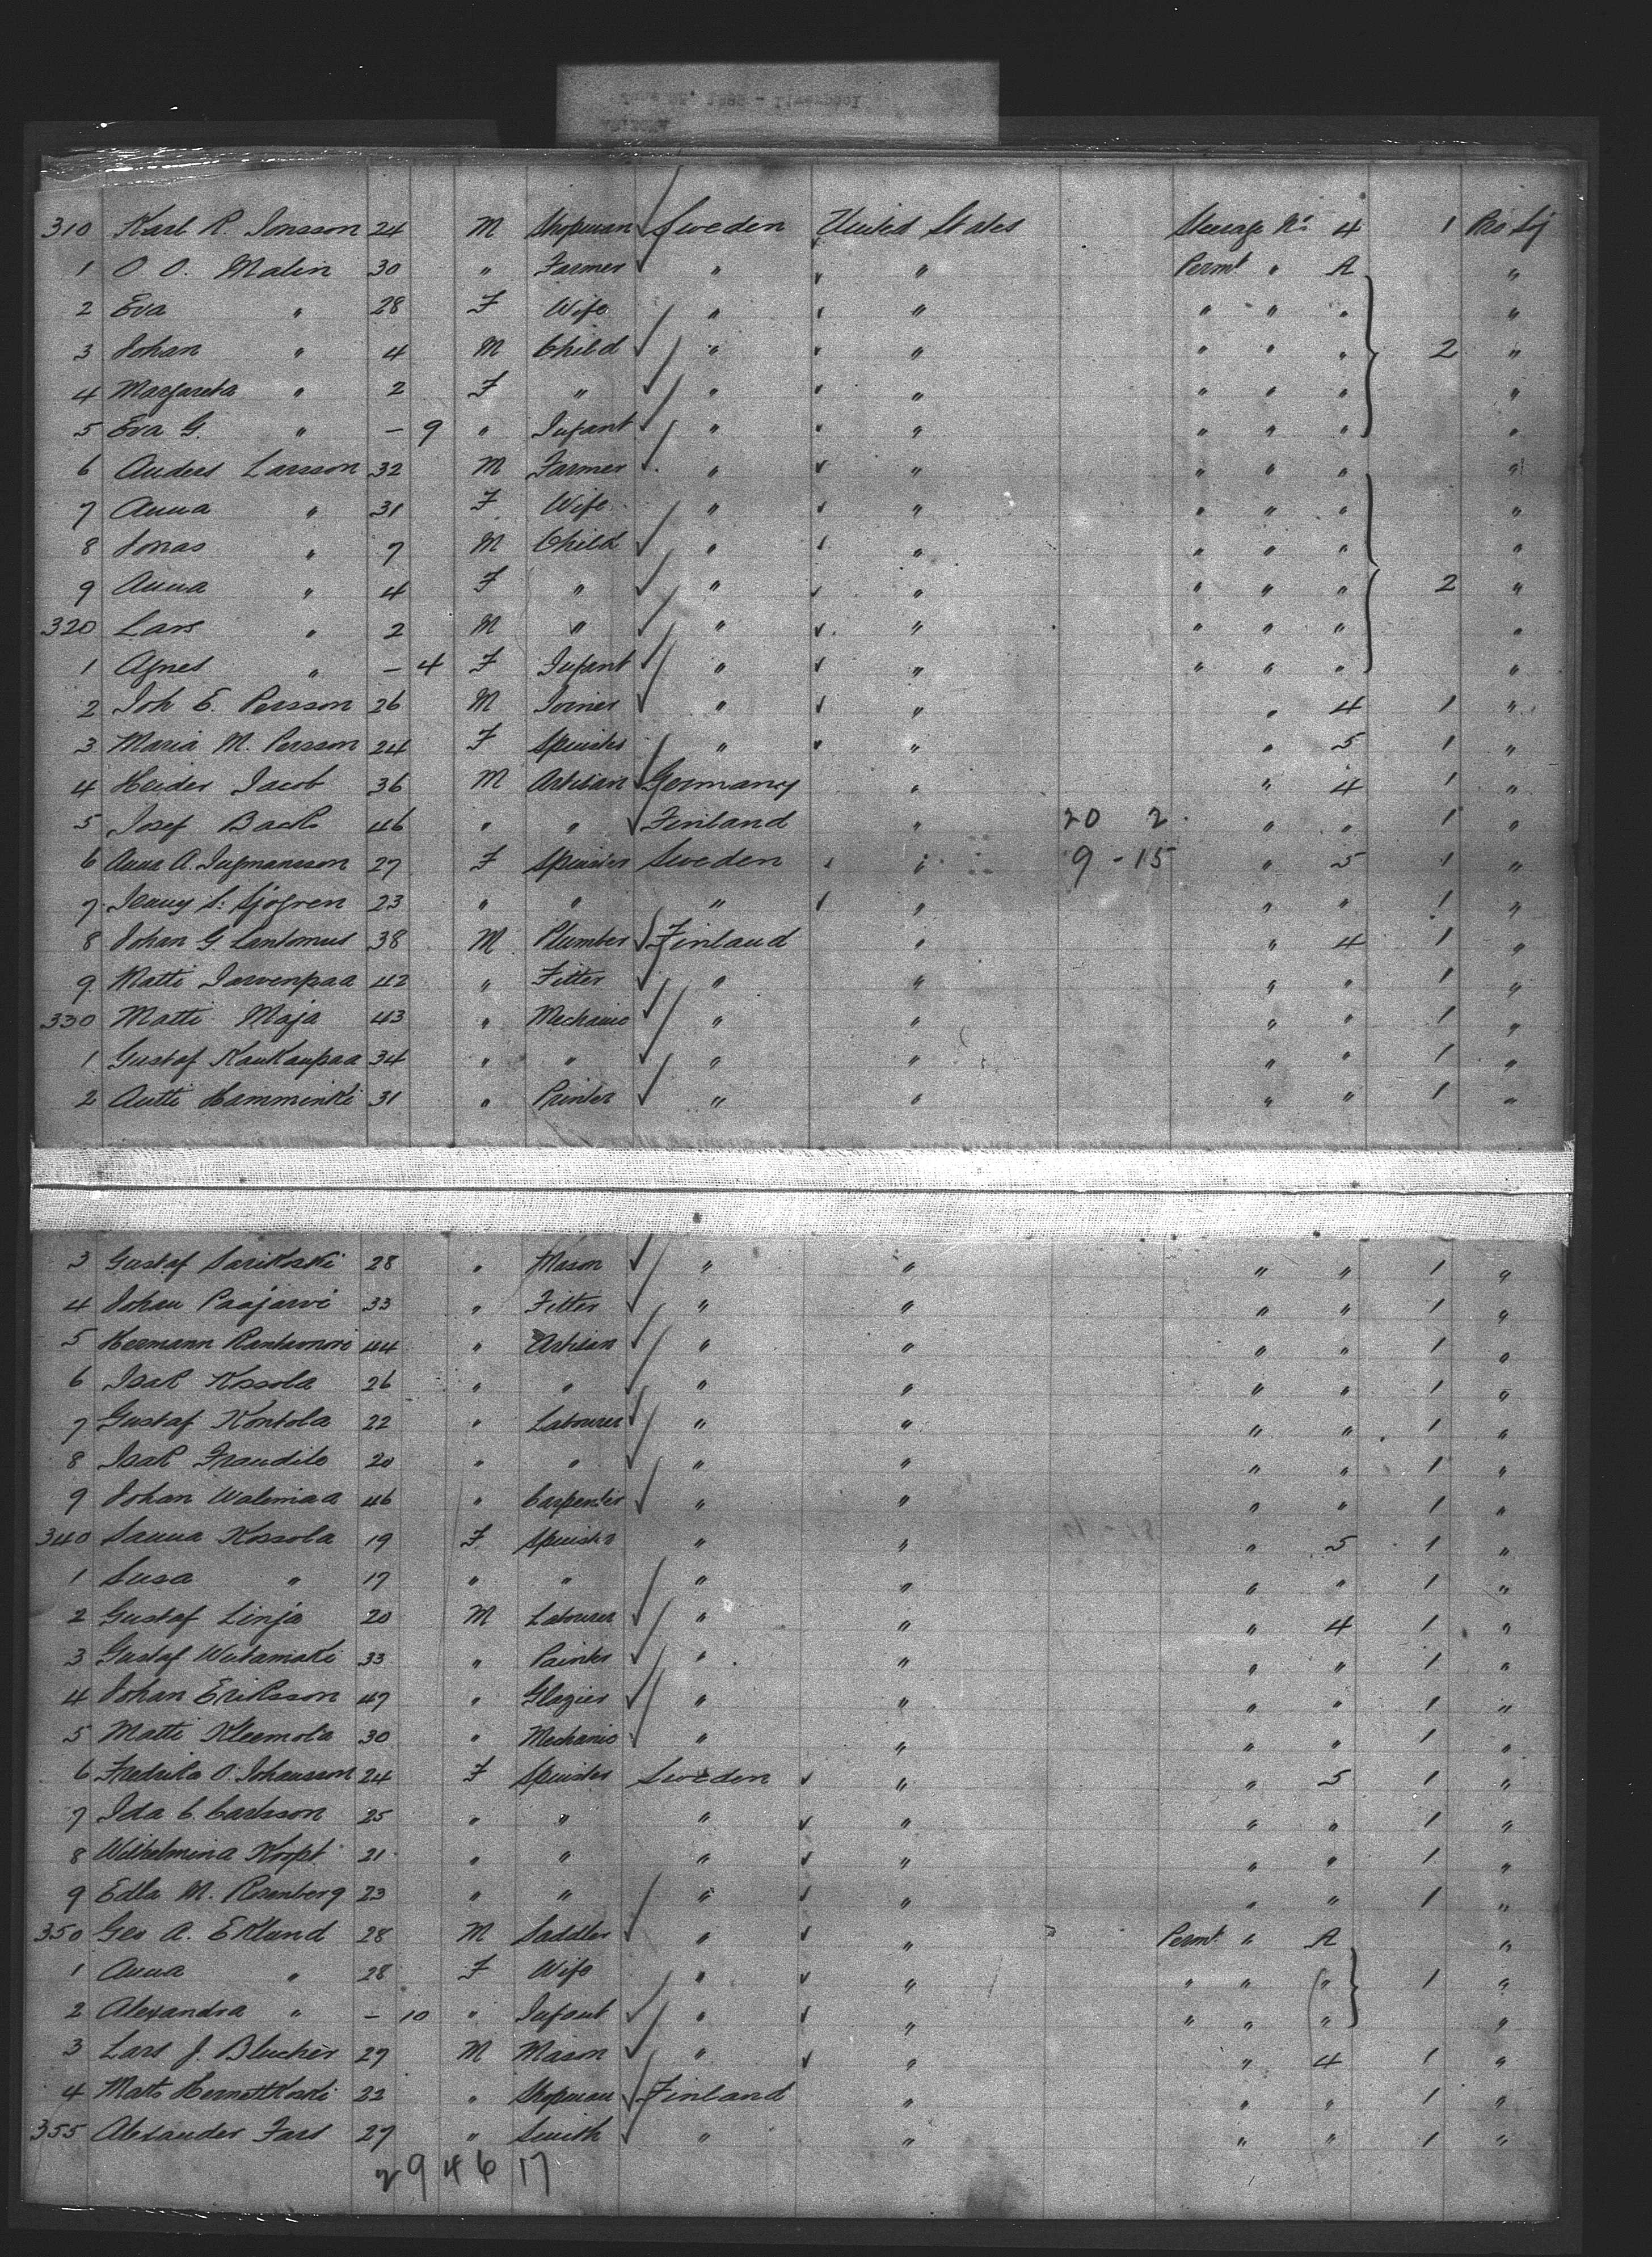 310 Karl R. Jonsson 24 M Shopman Sweden United States Steerage No 4 1 Pro Lj
1 O. O. Malin 30 " Farmer " " Permt " A "
2 Eva " 28 F Wife " " " " " "
3 Johan " 4 M Child " " " " " 2 "
4 Margareta " 2 F " " " " " " "
5 Eva G. " - 9 " Infant " " " " " "
6 Anders Larsson 32 M Farmer " " " " " "
7 Anna " 31 F Wife " " " " " "
8 Jonas " 7 M Child " " " " " "
9 Anna " 4 F " " " " " " 2 "
320 Lars " 2 M " " " " " " "
1 Agnes " - 4 F Infant " " " " " "
2 Joh E. Persson 26 M Joiner " " " 4 1 "
3 Maria M. Persson 24 F Spinster " " " 5 1 "
4 Heider Jacob 36 M Artisan Germany " " 4 1 "
5 Josef Back 46 " " Finland " 20 2 " " 1 "
6 Anna A. Ingmansson 27 F Spinster Sweden " 9 - 15 " 5 1 "
7 Jenny S. Sjogren 23 " " " " " " 1 "
8 Johan G. Lantomus 38 M Plumber Finland " " 4 1 "
9 Matti Jarvenpaa 42 " Fitter " " " " 1 "
330 Matti Maja 43 " Mechanic " " " " 1 "
1 Gustaf Kaukaupaa 34 " " " " " " 1 "
2 Antti Hamminki 31 " Printer " " " " 1 "
3 Gustaf Sarikoski 28 " Mason " " " " 1 "
4 Johan Paajarvi 33 " Fitter " " " " 1 "
5 Hermann 44 " Artisan " " " " 1 "
6 Isak Kossola 26 " " " " " " 1 "
7 Gustaf Kontola 22 " Labourer " " " " 1 "
8 Isak Frandilo 20 " " " " " " 1 "
9 Johan Walimaa 46 " Carpenter " " " " 1 "
340 Sanna Kossola 19 F Spinster " " " 5 1 "
1 Susa " 17 " " " " " " 1 "
2 Gustaf Linja 20 M Labourer " " " 4 1 "
3 Gustaf Wutamaki 33 " Painter " " " " 1 "
4 Johan Eriksson 47 " Glazier " " " " 1 "
5 Matti Kleemola 30 " Mechanic " " " " 1 "
6 Fredrika O. Johansson 24 F Spinster Sweden " " 5 1 "
7 Ida C. Carlsson 25 " " " " " " 1 "
8 Wilhelmina Kropt 21 " " " " " " 1 "
9 Edla M. Rosenberg 23 " " " " " " 1 "
350 Geo A. Eklund 28 M Saddler " " Permt " A "
1 Anna " 28 F Wife " " " " " 1 "
2 Alexandra " - 10 " Infant " " " " " "
3 Lars J. Blucher 27 M Mason " " " 4 1 "
4 Matts Hernettkoski 22 " Shopman Finland " " " 1 "
355 Alexander Fars 27 " Smith " " " " 1 "
29 46 17